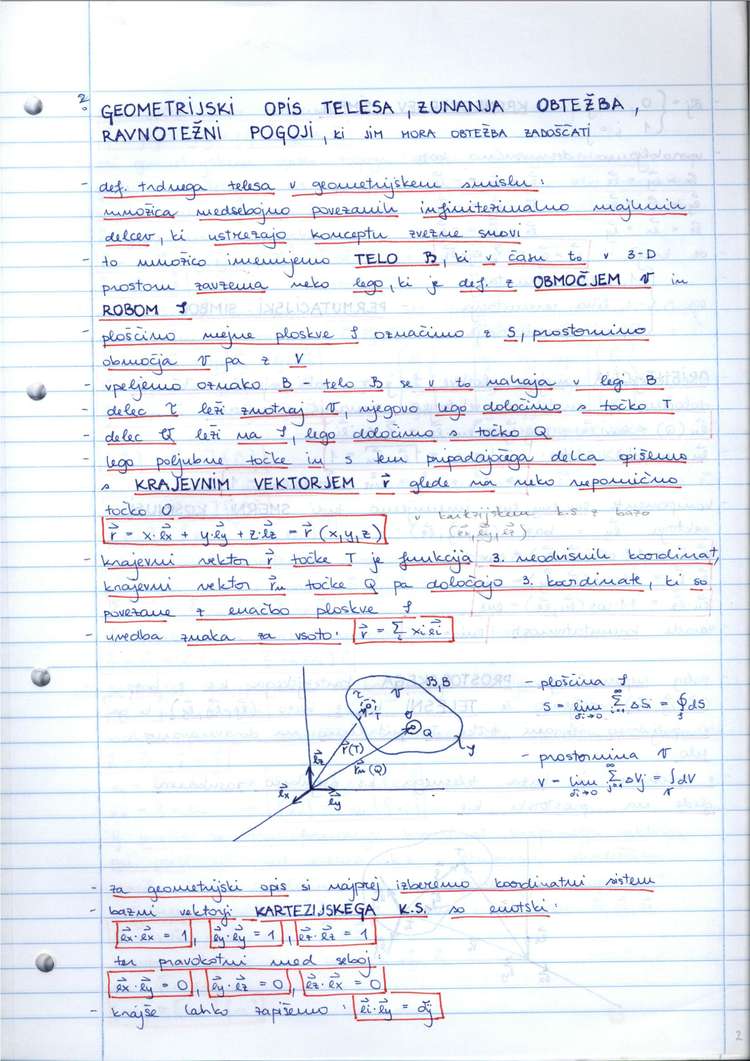 2.
GEOMETRIJSKI OPIS TELESA, ZUNANJA OBTEŽBA,
RAVNOTEŽNI POGOJI, KI JIM MORA OBTEŽBA ZADOŠČATI
- def. trdnega telesa v geometrijskem smislu:
množica medsebojno povezanih infinitezimalno majhnih
delcev, ki ustrezajo konceptu zvezne snovi
- to množico imenujemo TELO B, ki v času t₀ v 3-D
prostoru zavzema neko lego, ki je def. z OBMOČJEM V in
ROBOM S
- ploščino mejne ploskve S označimo z S, prostornino
območja V pa z V
- vpeljemo oznako B - telo B se v t₀ nahaja v legi B
- delec T leži znotraj V, njegovo lego določimo s točko T
- delec Q leži na S, lego določimo s točko Q
- lego poljubne točke in s tem pripadajočega delca opišemo
s KRAJEVNIM VEKTORJEM r⃗ glede na neko nepomično
točko O
v kartezijskem k.s z bazo
(e⃗x, e⃗y, e⃗z)
r⃗ = x·e⃗x + y·e⃗y + z·e⃗z = r⃗(x,y,z)
- krajevni vektor r⃗ točke T je funkcija 3. neodvisnih koordinat,
krajevni vektor r⃗m točke Q pa določajo 3. koordinate, ki so
povezane z enačbo ploskve S
- uvedba znaka za vsoto: r⃗ = Σᵢ xᵢe⃗ᵢ
B,B
V
T
Q
S
r⃗(T)
r⃗m(Q)
e⃗z
e⃗x
e⃗y
- ploščina S
S = lim δi→0 Σ i=1 ∞ ΔSi = ∮S dS
- prostornina V
V = lim δi→0 Σ j=1 ∞ ΔVj = ∫V dV
- za geometrijski opis si najprej izberemo koordinatni sistem
- bazni vektorji KARTEZIJSKEGA K.S. so enotski:
e⃗x·e⃗x = 1, e⃗y·e⃗y = 1, e⃗z·e⃗z = 1
ter pravokotni med seboj:
e⃗x·e⃗y = 0, e⃗y·e⃗z = 0, e⃗z·e⃗x = 0
- krajše lahko zapišemo: e⃗i·e⃗j = δij
2